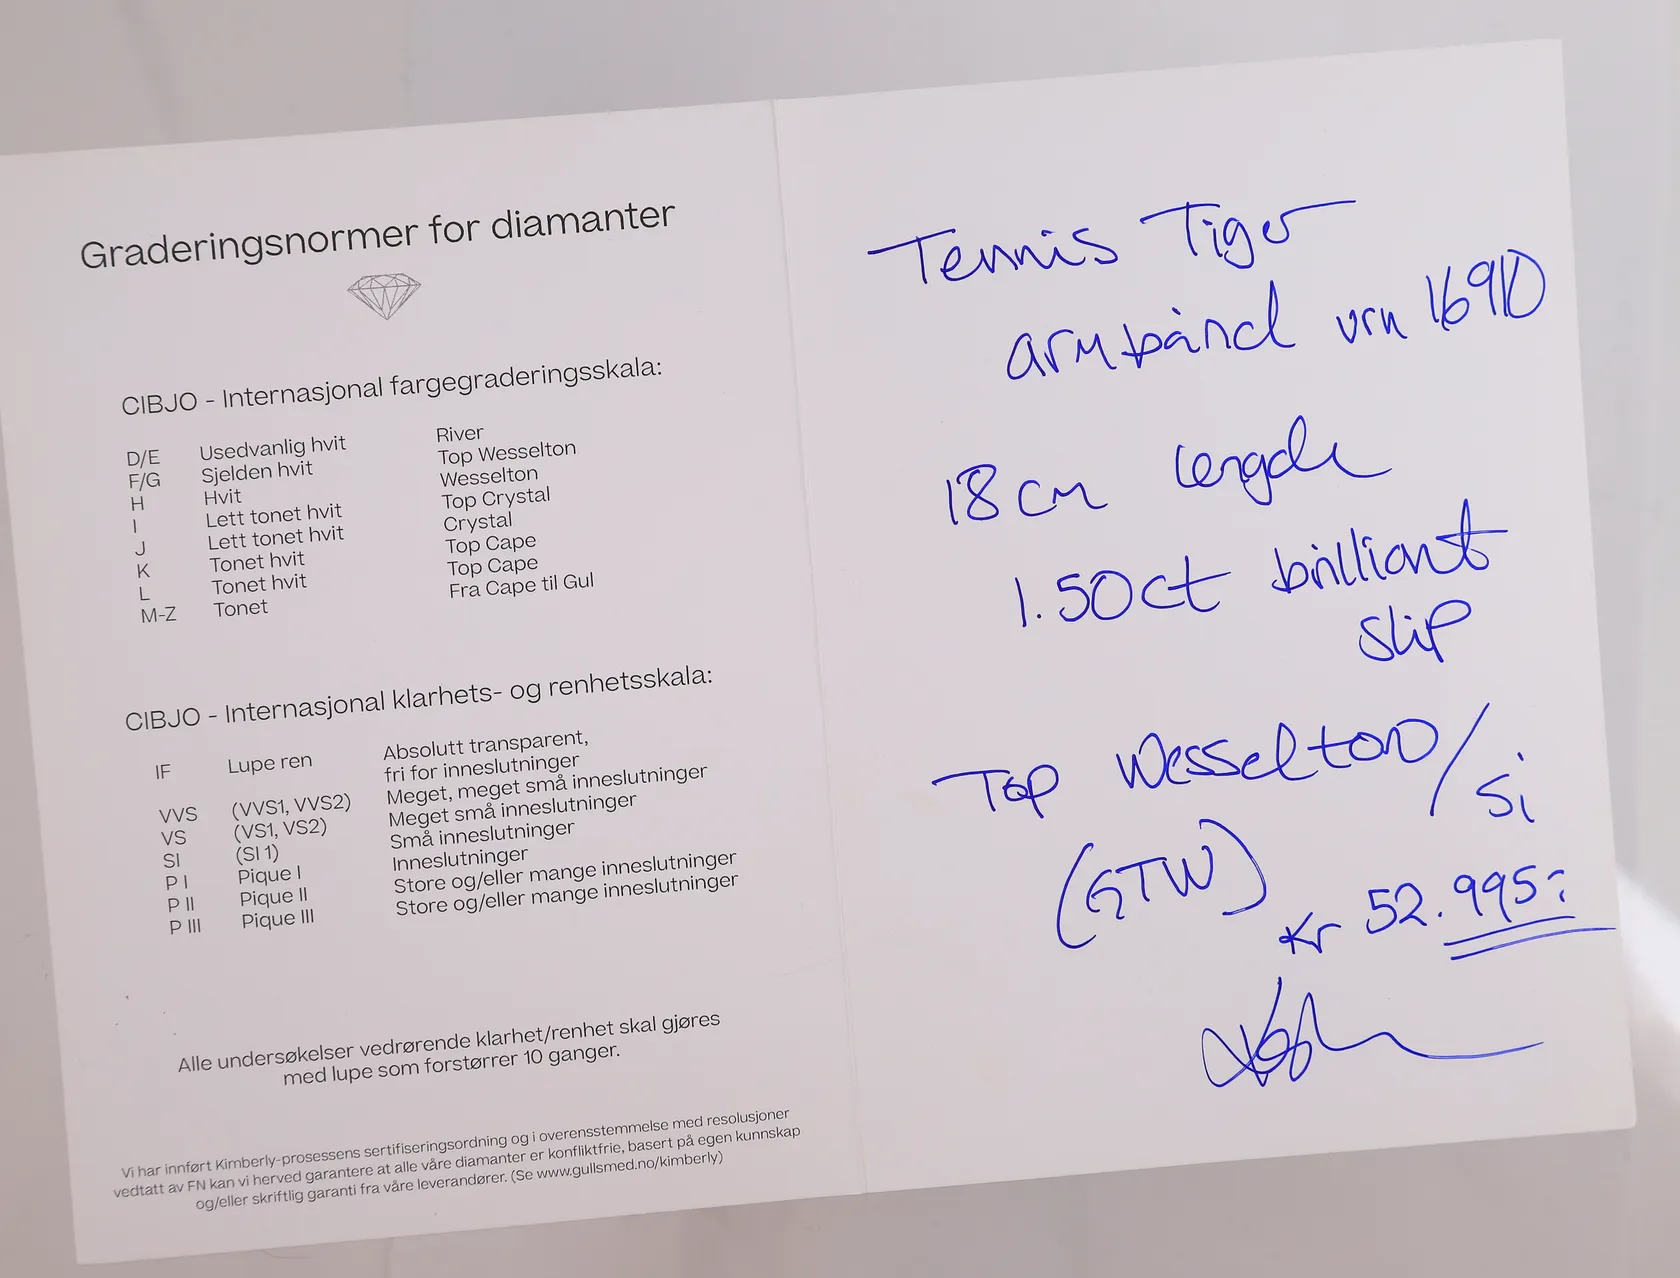 Graderingsnormer for diamanter
CIBJO - Internasjonal fargegraderingsskala:
D/E Usedvanlig hvit River
F/G Sjelden hvit Top Wesselton
H Hvit Wesselton
I Lett tonet hvit Top Crystal
J Lett tonet hvit Crystal
K Tonet hvit Top Cape
L Tonet hvit Top Cape
M-Z Tonet Fra Cape til Gul
CIBJO - Internasjonal klarhets- og renhetsskala:
IF Lupe ren Absolutt transparent,
fri for inneslutninger
VVS (VVS1, VVS2) Meget, meget små inneslutninger
VS (VS1, VS2) Meget små inneslutninger
SI (SI 1) Små inneslutninger
P I Pique I Inneslutninger
P II Pique II Store og/eller mange inneslutninger
P III Pique III Store og/eller mange inneslutninger
Alle undersøkelser vedrørende klarhet/renhet skal gjøres
med lupe som forstørrer 10 ganger.
Vi har innført Kimberly-prosessens sertifiseringsordning og i overensstemmelse med resolusjoner
vedtatt av FN kan vi herved garantere at alle våre diamanter er konfliktfrie, basert på egen kunnskap
og/eller skriftlig garanti fra våre leverandører. (Se www.gullsmed.no/kimberly)
Tennis Tiger
armbånd vrn 1690
18 cm lengde
1.50 ct brilliant
slip
Top Wesselton/
Si
(GTW)
Kr 52.995:-